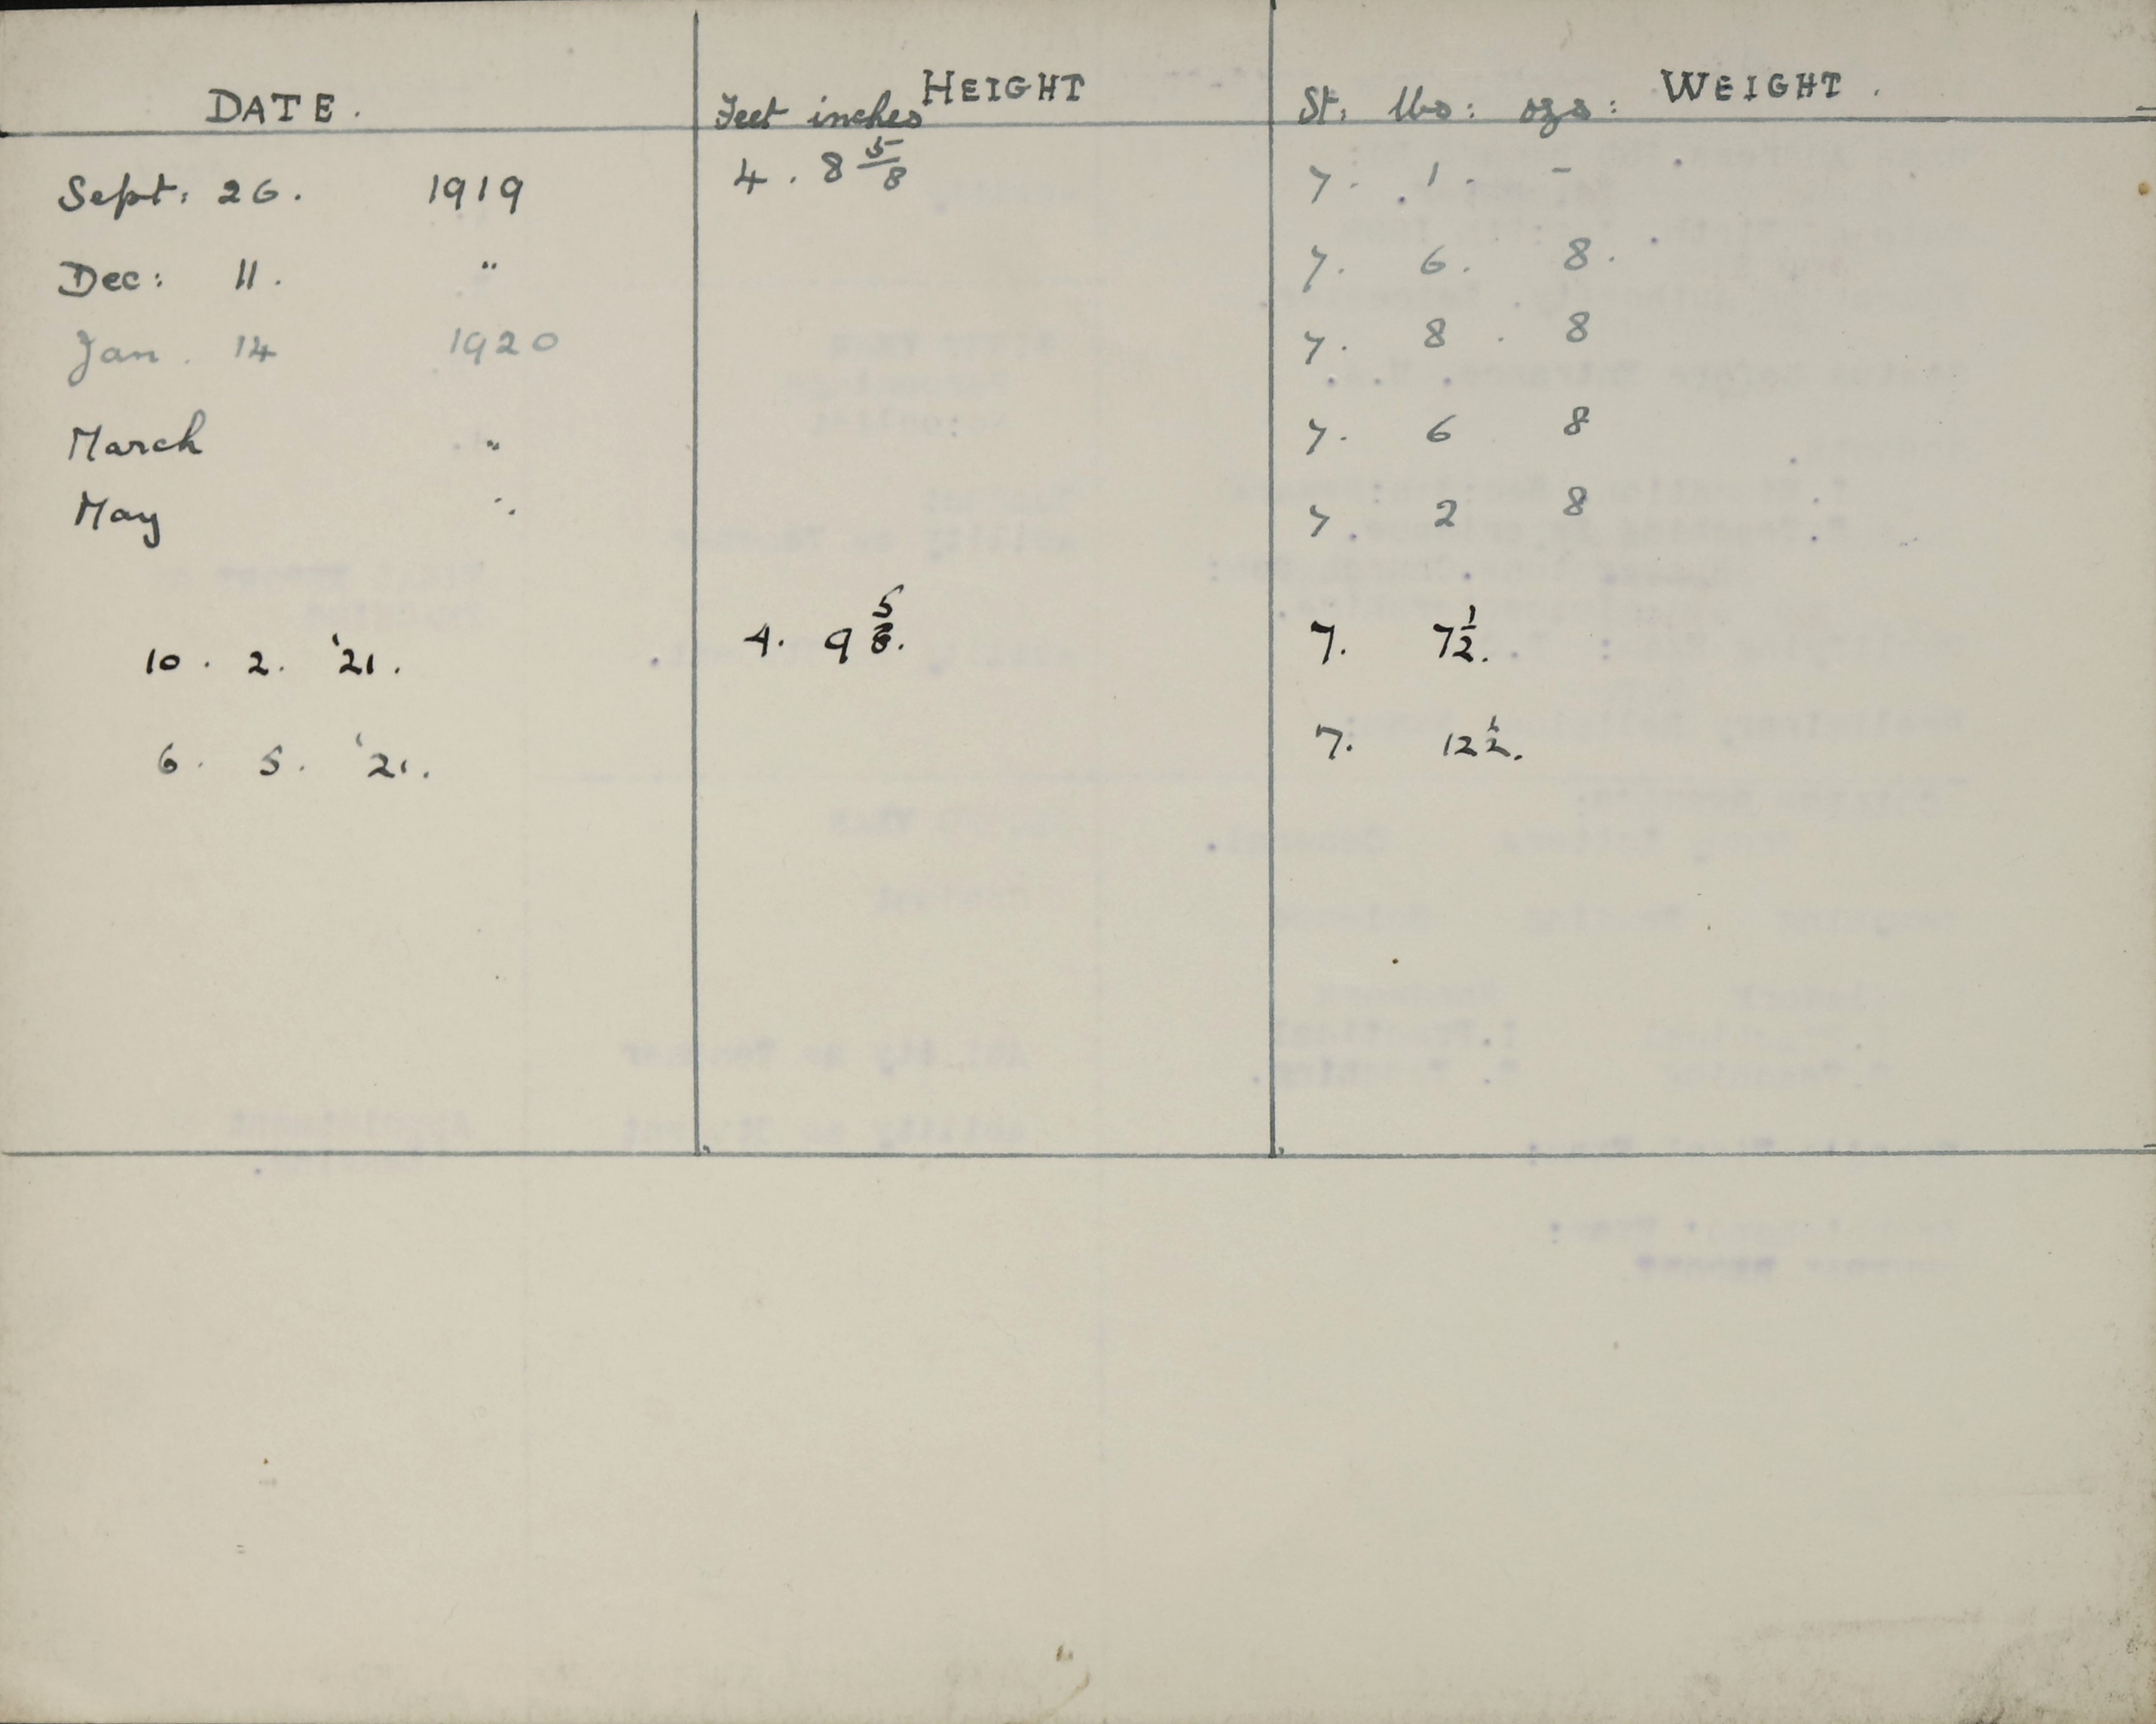 DATE. Feet inches HEIGHT St: lbs: ozs: WEIGHT.
Sept: 26. 1919 4. 8 5/8 7. 1. -
Dec: 11. " 7. 6. 8.
Jan. 14 1920 7. 8. 8
March " 7. 6 8
May " 7 2 8
10. 2. '21. 4. 9 5/8. 7. 7 1/2.
6. 5. '21. 7. 12 1/2.